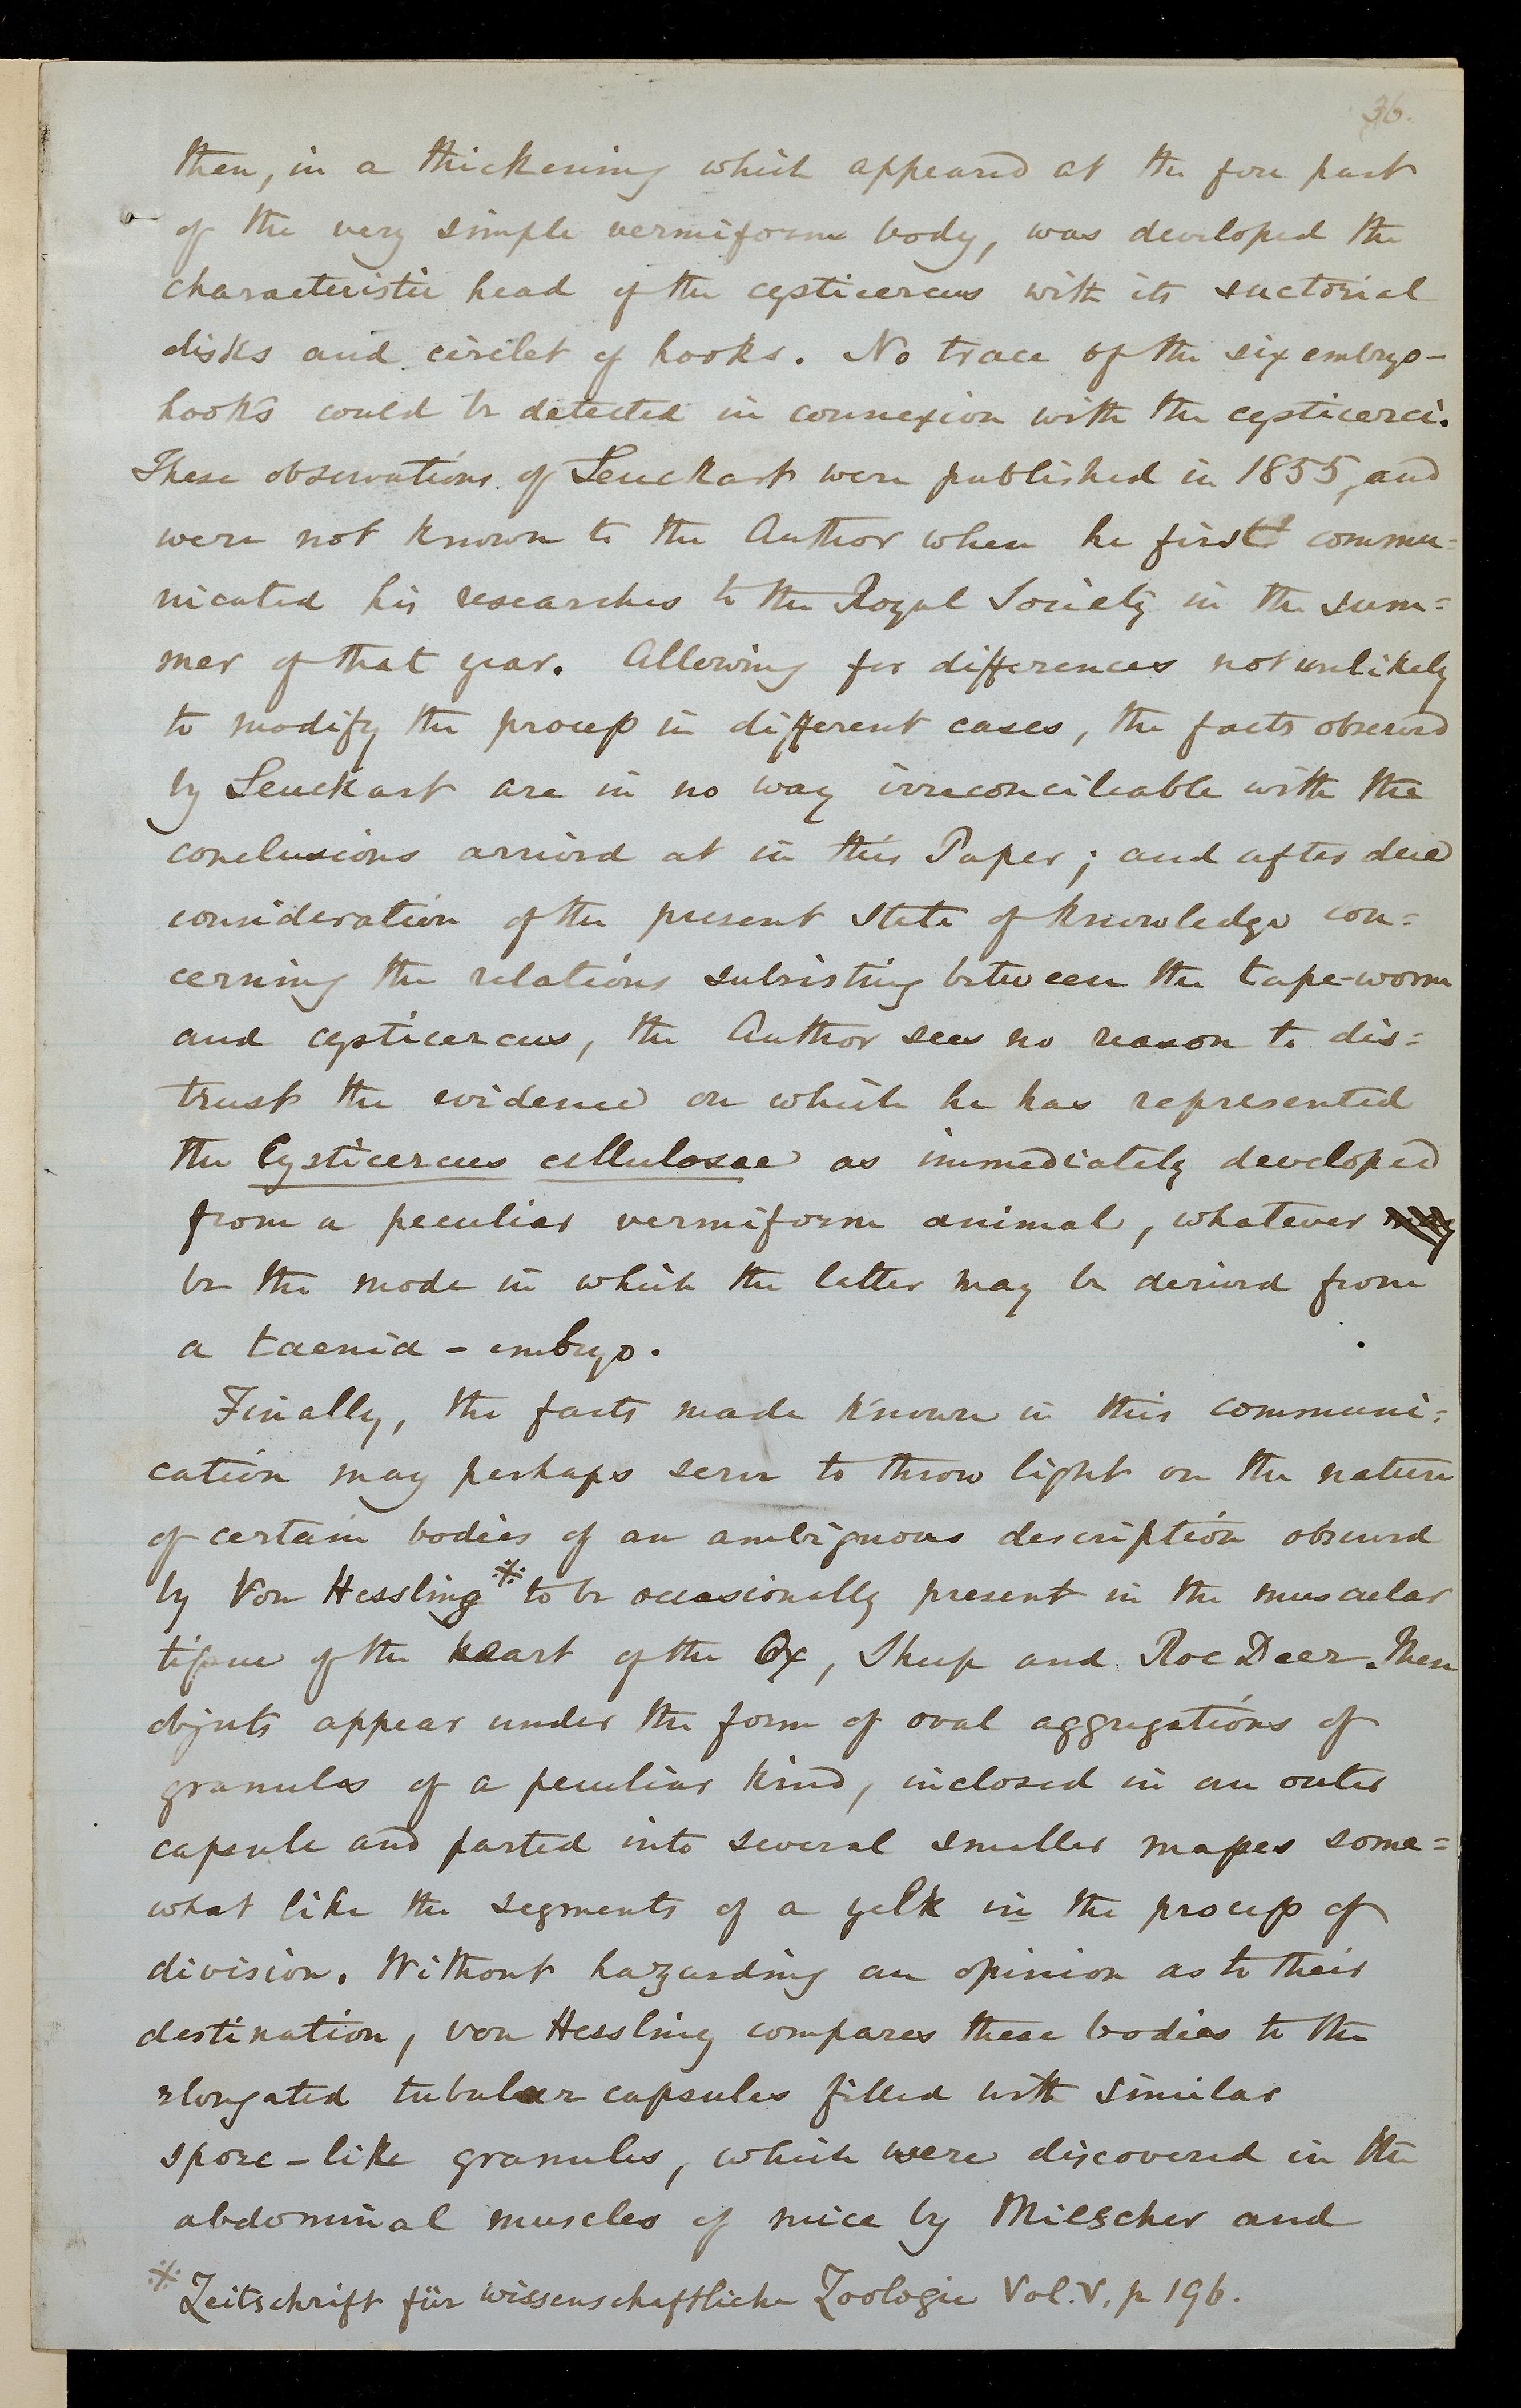 36.
then, in a thickening which appeared at the fore part
of the very simple vermiform body, was developed the
characteristic head of the cysticercus with its suctorial
disks and circlet of hooks. No trace of the six embryo-
hooks could be detected in connexion with the cysticerci.
These observations of Leuckart were published in 1855, and
were not known to the Author when he first commu=
nicated his researches to the Royal Society in the sum=
mer of that year. Allowing for differences not unlikely
to modify the process in different cases, the facts observed
by Leuckart are in no way irreconcileable with the
conclusions arrived at in this Paper; and after due
consideration of the present state of knowledge con=
cerning the relations subsisting between the tape-worm
and cysticercus, the Author sees no reason to dis=
trust the evidence on which he has represented
the Cysticercus cellulosae as immediately developed
from a peculiar vermiform animal, whatever may
be the mode in which the latter may be derived from
a taenia-embryo.
Finally, the facts made known in this communi=
cation may perhaps serve to throw light on the nature
of certain bodies of an ambiguous description observed
by Von Hessling※ to be occasionally present in the muscular
tissue of the heart of the Ox, Sheep and Roe Deer. These
objects appear under the form of oval aggregations of
granules of a peculiar kind, inclosed in an outer
capsule and parted into several smaller masses some=
what like the segments of a yelk in the process of
division. Without hazarding an opinion as to their
destination, von Hessling compares these bodies to the
elongated tubular capsules filled with similar
spore-like granules, which were discovered in the
abdominal muscles of mice by Miescher and
※ Zeitschrift für wissenschaftliche Zoologie Vol. V. p 196.